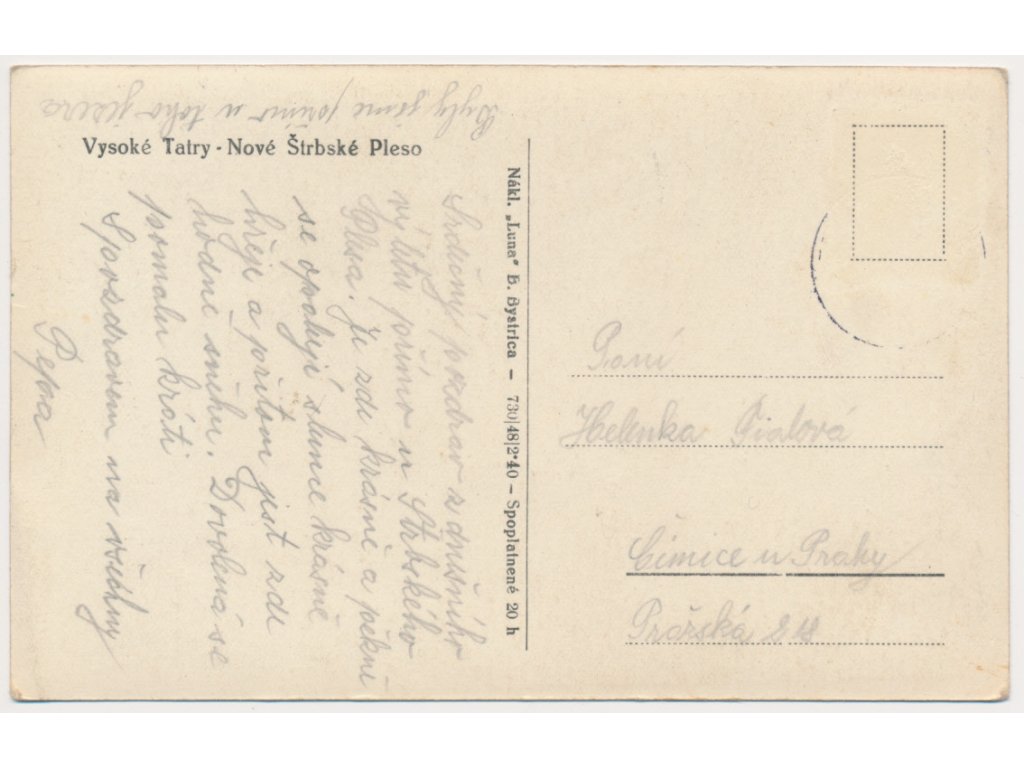 Byly jsme přímo u toho jezera
Vysoké Tatry - Nové Štrbské Pleso
Srdečný pozdrav z dnešního
výletu přímo u Štrbského
Plesa. Je zde krásně a pěkně
se opalují slunce krásně
hřeje a přitom jest zde
hodně sněhu. Dovolená se
pomalu krátí
Spozdravem na všechny
Pepa
Nákl. „Luna" B. Bystrica — 730|48|2·40 — Spoplatnené 20 h
Paní
Helenka Fialová
Čimice u Prahy
218